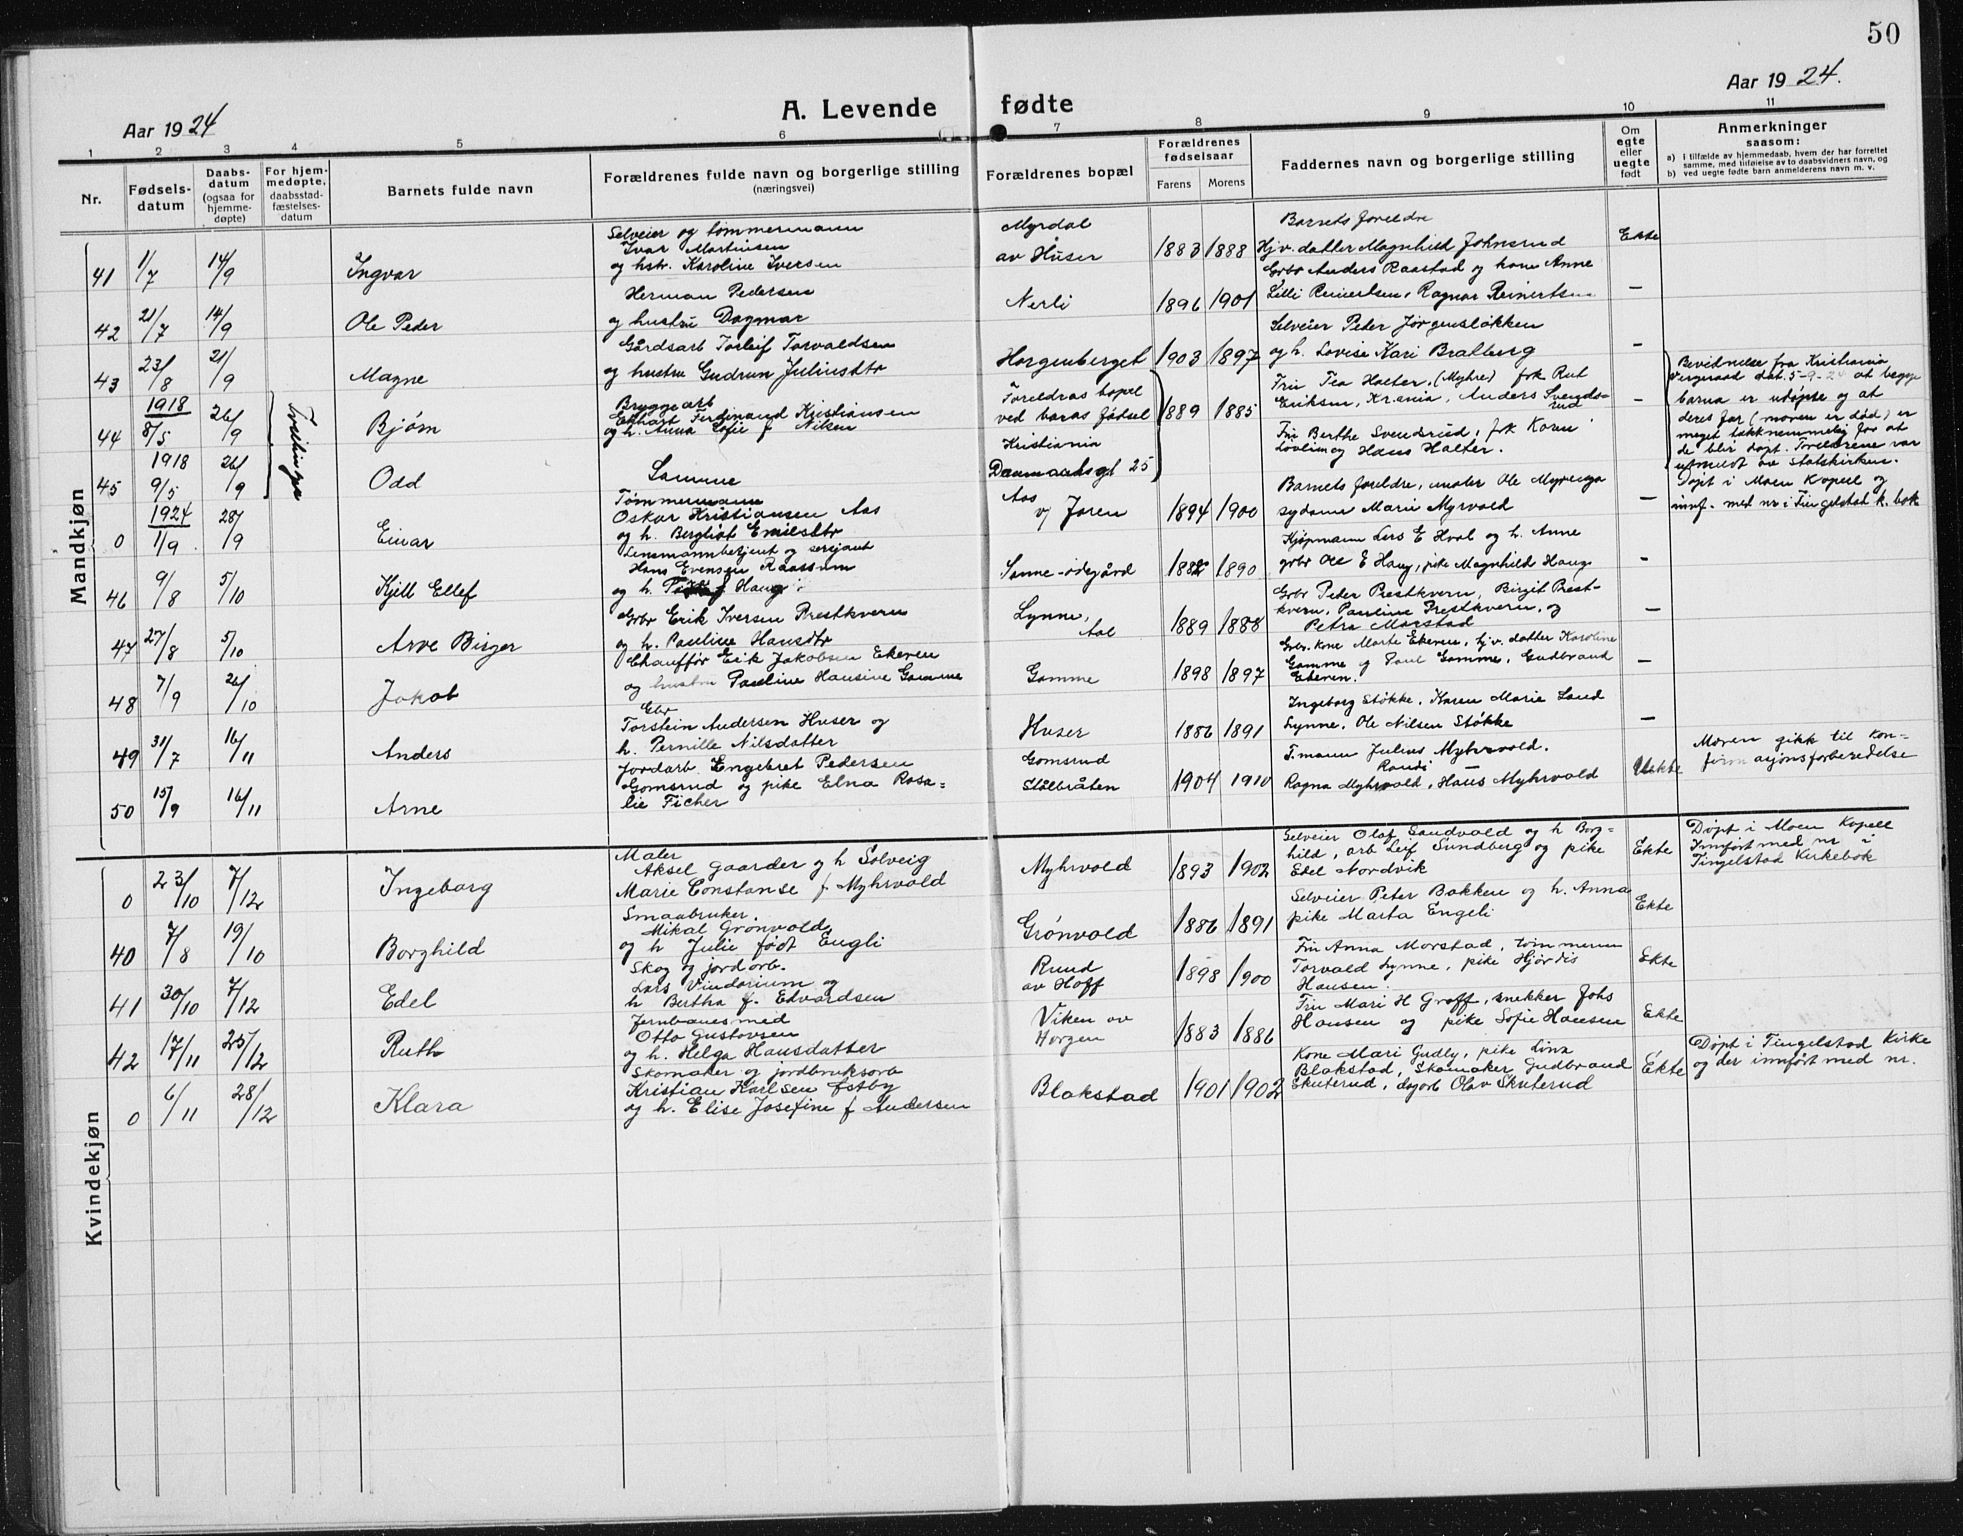 50
Aar 1924
A. Levende fødte
Aar 1924.
1 2 3 4 5 6 7 8 9 10 11
Nr.
Fødselsdatum
Daabsdatum (ogsaa for hjemmedøpte)
For hjemmedøpte, daabsstadfæstelsesdatum
Barnets fulde navn
Forældrenes fulde navn og borgerlige stilling (næringsvei)
Forældrenes bopæl
Forældrenes fødselsaar
Farens Morens
Faddernes navn og borgerlige stilling
Om egte eller uegte født
Anmerkninger saasom:
a) i tilfælde av hjemmedaab, hvem der har forrettet samme, med tilføielse av to daabsvidners navn, og
b) ved uegte fødte barn anmelderens navn m. v.
Mandkjøn
41 1/7 14/9 Ingvar
Selveier og tømmermann
Ivar Martinsen
og hstr. Karoline Iversen
Myrdal
av Huser
1883 1888
Barnets foreldre
Hjv. datter Magnhild Johnsrud
Grbr Anders Raastad og kone Anne
Ekte
42 21/7 14/9 Ole Peder
Herman Pedersen
og hustru Dagmar
Nerli
1896 1901
Lilli Reinertsen, Ragnar Reinertsen
—
43 23/8 21/9 Magne
Gårdsarb Torleif Torvaldsen
og hustru Gudrun Juliusdtr
Horgenberget
1903 1897
Selveier Peder Jørgensløkken
og h. Lovise Kari Bratberg
—
44 1918 8/5 26/9 Bjørn
Bryggearb
Ekhart Ferdinand Kristiansen
og h. Anna Sofie f Nilsen
Foreldras bopel
ved baras fødsel
Kristiania
Danmarksgt 25
1889 1885
Fru Tea Halter, (Myhre) frk Rut
Eriksen, Kr.ania, Anders Svendsrud
Fru Berthe Svendsrud, frk Karen
og Hans Halter.
—
Bevidnelse fra Kristiania
Vergeraad dat. 5-9-24 at begge
barna er udøpte og at
deres far (moren er død) er
meget takknemmelig for at
de blir døpt. Forældrene var
utmeldt av Statskirken.
45 1918 9/5 26/9 Odd
Samme
0 1924 1/9 28/9 Einar
Tømmermann
Oskar Kristiansen Aas
og h. Bergliot Emilsdtr
Aas
v/ Jaren
1894 1900
Barnets foreldre, maler Ole Myrenga
sydame Marie Myrvold
—
Døpt i Moen Kapell og
innf. med nr i Tingelstad k. bok
46 9/8 5/10 Kjell Ellef
Lensmannbetjent og sersjant
Hans Evensen Raassum
og h. f Haug
Sanne-ødegård
1882 1890
Kjøpmann Lars E Hval og h. Anne
grbr Ole E Haug, pike Magnhild Haug
—
47 27/8 5/10 Arve Birger
Grbr Erik Iversen Prestkvern
og h. Pauline Hansdtr
Lynne,
Aal
1889 1888
Grbr Peter Prestkvern, Birgit Prestkvern,
Pauline Prestkvern, og
Petra Morstad
—
48 7/9 26/10 Jakob
Chauffør Erik Jakobsen Ekeren
og hustru Pauline Hansine Gamme
Gamme
1898 1897
Grbr. kone Marte Ekeren, hj.v. datter Karoline
Gamme og Paul Gamme, Gudbrand
Ekeren.
—
49 31/7 16/11 Anders
Gbr
Torstein Andersen Huser og
h. Pernille Nilsdatter
Huser
1886 1891
Ingeborg Støkke, Karen Marie Sand
Lynne, Ole Nilsen Støkke
—
50 15/9 16/11 Arne
Jordarb. Engebret Pedersen
Gomsrud og pike Elna Rosalie
Ficher
Gomsrud
Stålbråten
1904 1910
T.mann Julius Myhrvold,
Randi —
Ragna Myhrvold, Hans Myhrvold
Uekte
Moren gikk til konfirmasjonsforberedelse
Kvindekjøn
0 23/10 7/12 Ingeborg
Maler
Aksel Gaarder og h Solveig
Marie Constanse f Myhrvold
Myhrvold
1893 1902
Selveier Olaf Sandvold og h Borghild,
arb Leif Sundberg og pike
Edel Nordvik
Ekte
Døpt i Moen Kapell
Innført med nr i
Tingelstad Kirkebok
40 7/8 19/10 Borghild
Smaabruker.
Mikal Grønvold,
og h Julie født Engli
Grønvold
1886 1891
Selveier Peter Bakken og h. Anna
pike Marta Engeli
Ekte
41 30/10 7/12 Edel
Skog og jordarb.
Lars Vindorium og
h Bertha f. Edvardsen
Ruud
av Hoff
1898 1900
Fru Anna Morstad, tømmerm
Torvald Lynne, pike Hjørdis
Hansen.
Ekte
42 17/11 25/12 Ruth
Jernbanesmed
Otto Gustavsen
og h. Helga Hansdatter
Viken av
Horgen
1883 1886
Fru Mari H Graff, snekker Johs
Hansen og pike Sofie Hansen
Ekte
0 6/11 28/12 Klara
Skomaker og jordbruksarb
Kristian Karlsen Østby
og h. Elise Josefine f Andersen
Blakstad
1901 1902
Kone Mari Gudly, pike Lina
Blakstad, Skomaker Gudbrand
Skuterud, dagarb Olav Skuterud
Ekte
Døpt i Tingelstad Kirke
og der innført med nr.